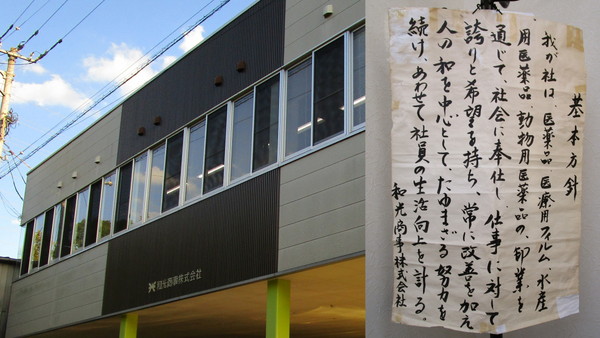 和光商事株式会社
基本方針
我が社は、医薬品 医療用フィルム、水産
用医薬品、動物用医薬品の、卸業を
通じて、社会に奉仕し、仕事に対して
誇りと希望を持ち、常に改善を加え
人の和を中心として、たゆまざる努力を
続け、あわせて社員の生活向上を計る。
和光商事株式会社